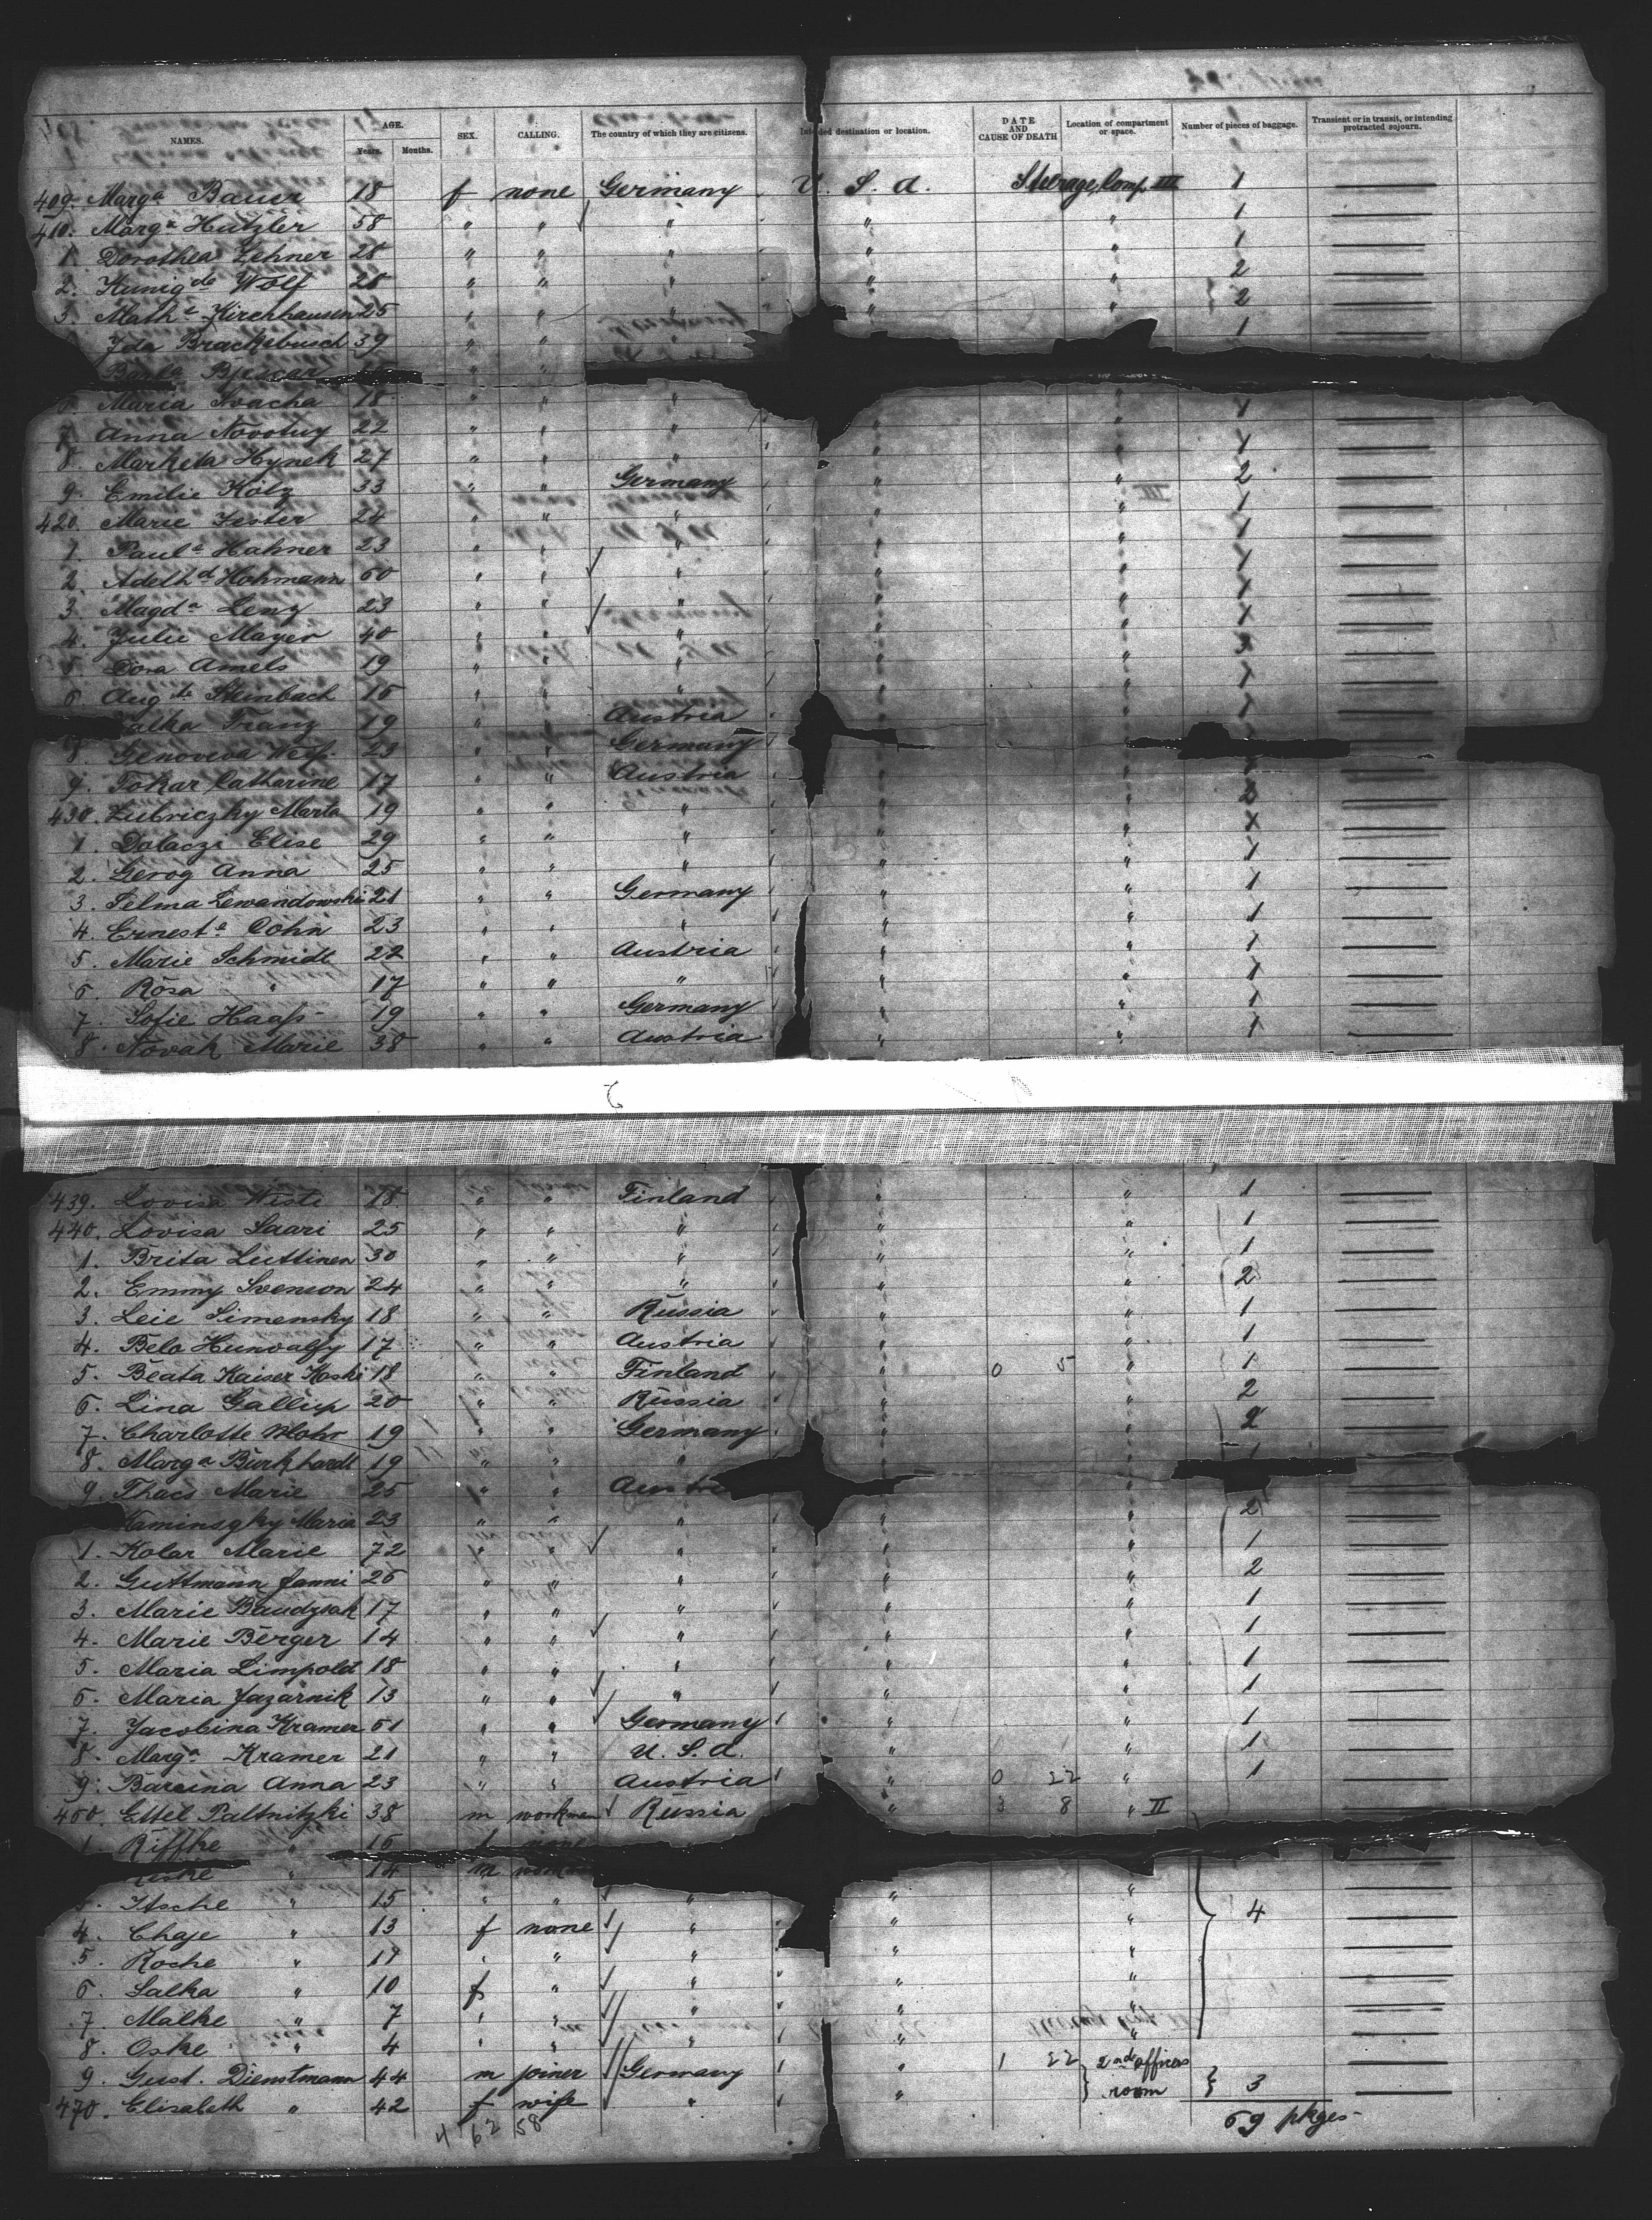 NAMES. AGE. Years. Months. SEX. CALLING. The country of which they are citizens. destination or location. DATE AND CAUSE OF DEATH Location of compartment or space. Number of pieces of baggage. Transient or in transit, or intending protracted sojourn.
409. Marg.a Bauer 18 f none Germany U. S. A. Steerage, Comp. III 1
410. Marg.a Hutzler 58 " " " " " 1
1. Dorothea Lehner 28 " " " " " 1
2. Kunig.de Wolf 28 " " " " " 2
3. Math.e Kirchhausen 25 " " " " " 2
Ida Brackebusch 39 " " " 1
" "
6. Maria Svacha 18 " " " " 1
7. Anna Novotny 22 " " " " " 1
8. Marketa Hynek 27 " " " " " 1
9. Emilie Kölz 33 " " Germany " " 2
420. Marie Fester 24 " " " " " 1
1. Paul.e Hahner 23 " " " " " 1
2. Adelh.d Hohmann 60 " " " " " 1
3. Magd.a Leny 23 " " " " " 1
4. Julie Mayer 40 " " " " " 1
5. Dora Amels 19 " " " " " 3
6. Aug.te Steinbach 16 " " " " " 1
Franz 19 " " Austria 1
8. Genoveva 23 " " Germany
9. Tokar Catharine 17 " " Austria " "
430. Lubriczky Marta 19 " " " " " 2
1. Dolaczi Elise 29 " " " " "
2. Gerog Anna 25 " " " " " 1
3. Selma Lewandowski 21 " " Germany " " 1
4. Ernest.e Cohn 23 " " " " " 1
5. Marie Schmidt 22 " " Austria " " 1
6. Rosa " 17 " " " " " 1
7. Sofie Haass 19 " " Germany " " 1
8. Novak Marie 38 " " Austria " " 1
439. Lovisa Wisti 18 " " Finland " " 1
440. Lovisa Saari 25 " " " " " 1
1. Brita Luttinen 30 " " " " " 1
2. Emmy Svenson 24 " " " " " 2
3. Leie Simensky 18 " " Russia " " 1
4. Bela Hunvalfy 17 " " Austria " " 1
5. Beata Kaiser Koski 18 " " Finland " 0 5 " 1
6. Lina Gallup 20 " " Russia " " 2
7. Charlotte Mohr 19 " " Germany " " 2
8. Marg.a Burkhardt 19 " " " " " 1
9. Thacs Marie 25 " "
Kaminsgky Maria 23 " " " " " 2
1. Kolar Marie 72 " " " " " 1
2. Guttmann Fanni 26 " " " " " 2
3. Marie Baudzsak 17 " " " " " 1
4. Marie Berger 14 " " " " " 1
5. Maria Limpold 18 " " " " " 1
6. Maria Jazarnik 13 " " " " " 1
7. Jacobina Kramer 61 " " Germany " " 1
8. Marg.a Kramer 21 " " U. S. A. " " 1
9. Barcina Anna 23 " " Austria " 0 22 " 1
460. Ettel Paltnitzki 38 m workman Russia " 3 8 " II
1. Riffke " 16 f none
" 14 m
3. Itsche " 15 " " " " "
4. Chaje " 13 f none " " " 4
5. Roche " 17 " " " " "
6. Salka " 10 f " " " "
7. Malke " 7 " " " " "
8. Oske " 4 " " " " "
9. Gust. Dienstmann 44 m joiner Germany " 1 22 2nd officers
470. Elisabeth " 42 f wife " " room 3
4 62 58 69 pkges